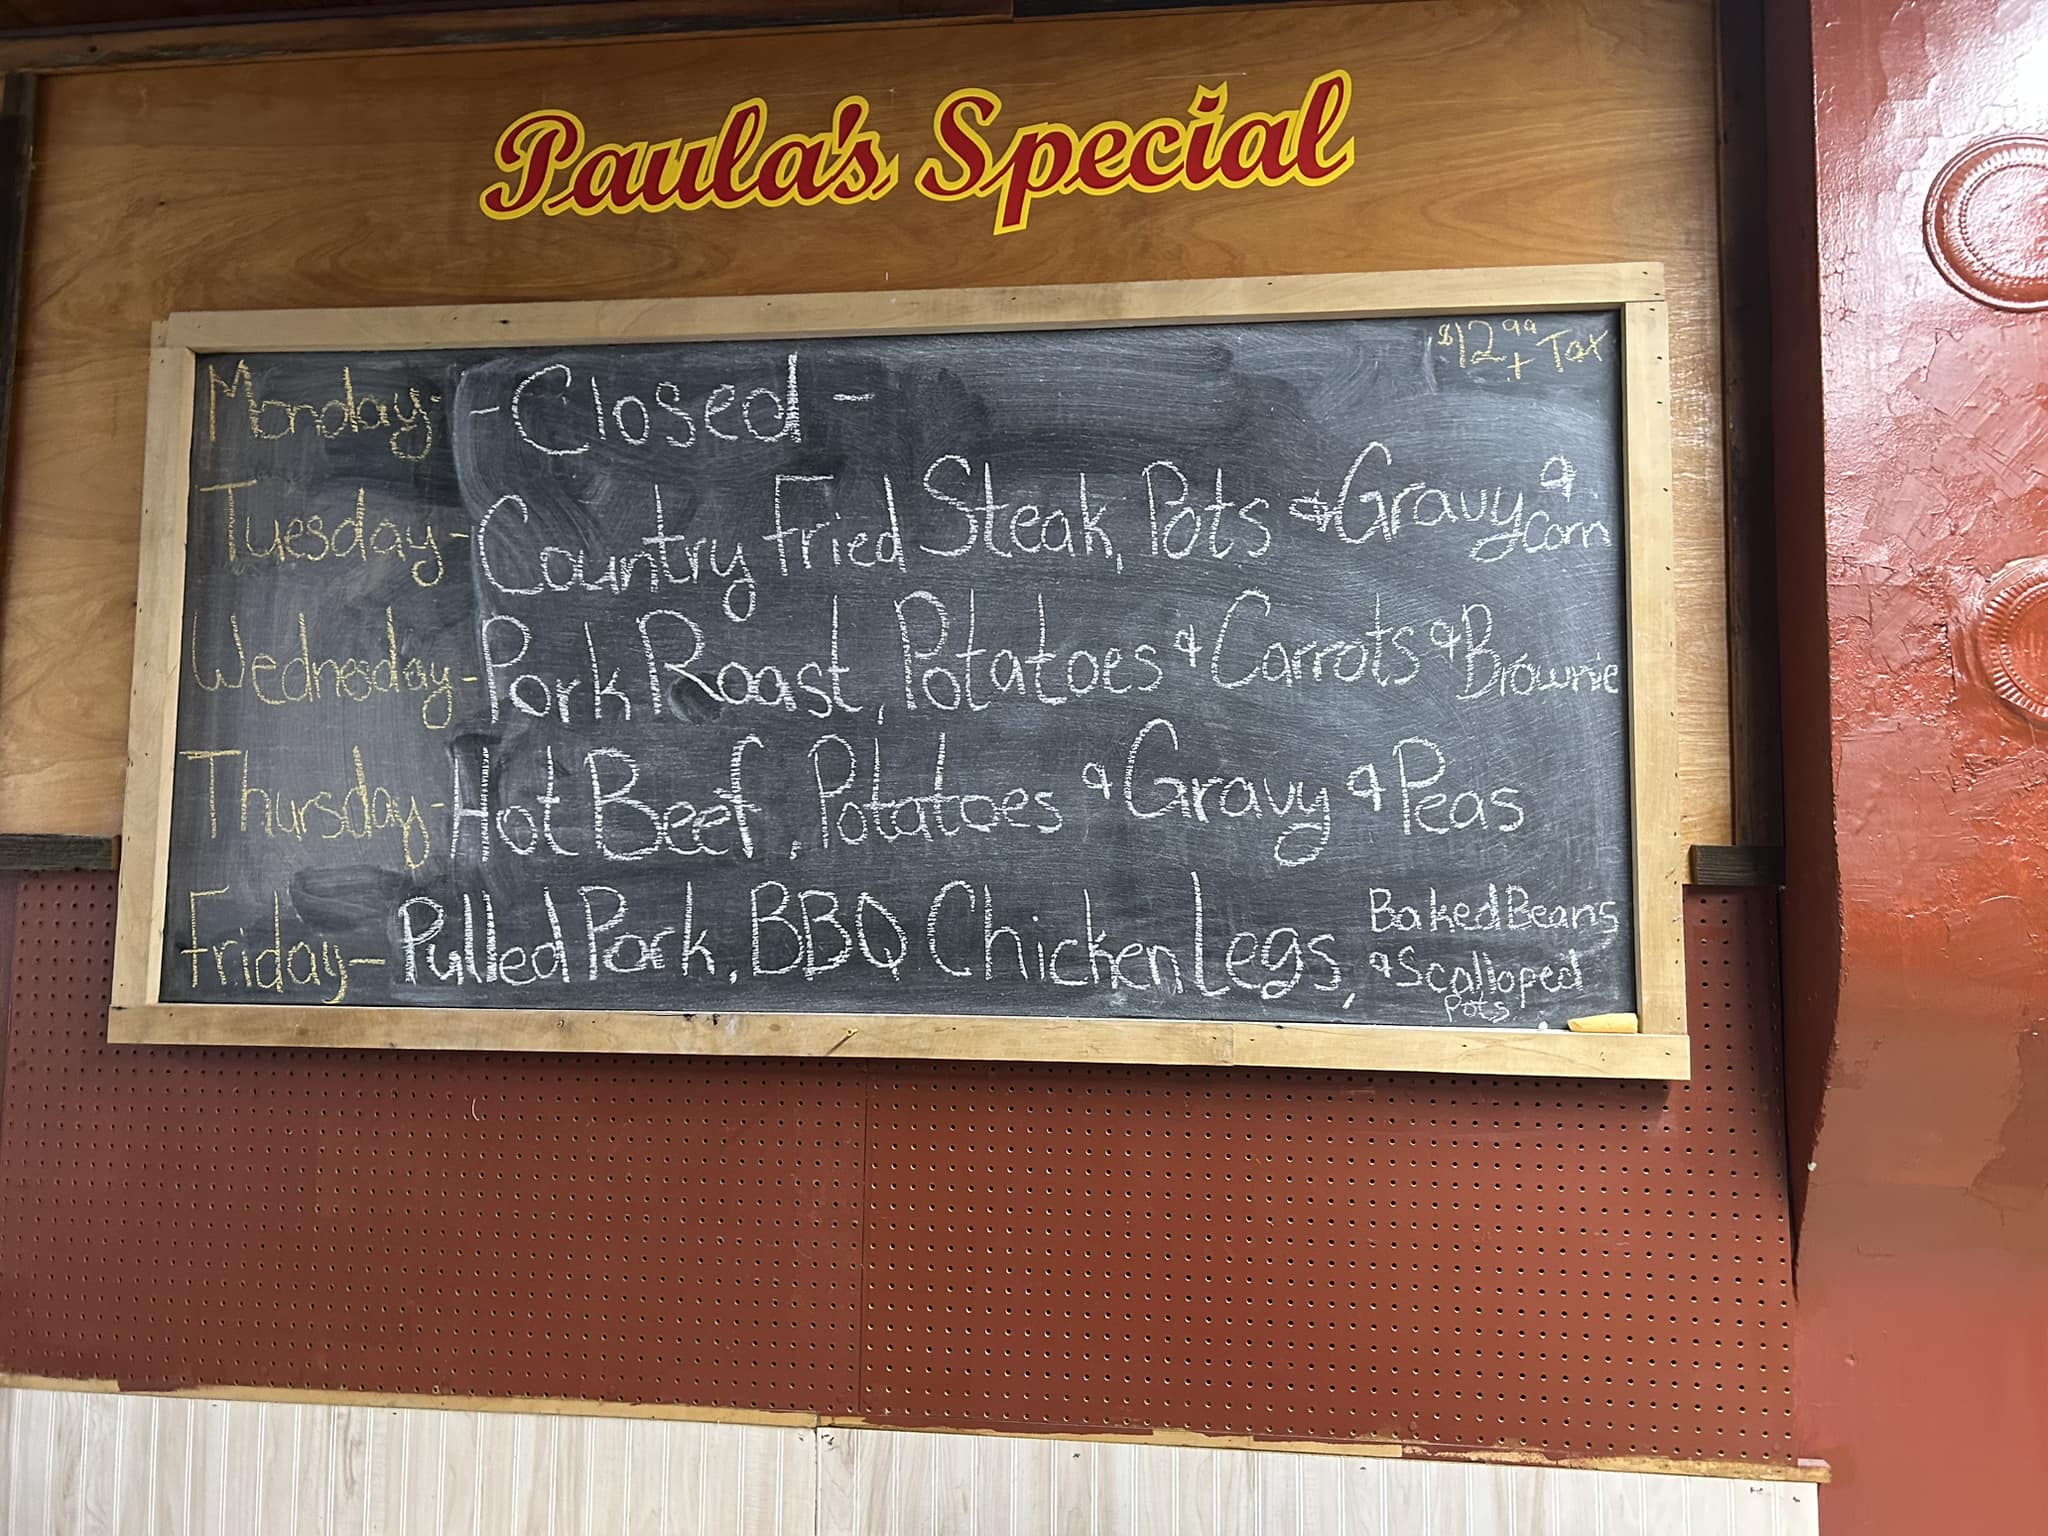 Paula's Special
$12.99 + Tax
Monday: - Closed -
Tuesday - Country Fried Steak, Pots & Gravy & Corn
Wednesday - Pork Roast, Potatoes & Carrots & Brownie
Thursday - Hot Beef, Potatoes & Gravy & Peas
Friday - Pulled Pork, BBQ Chicken Legs, Baked Beans
& Scalloped
Pots